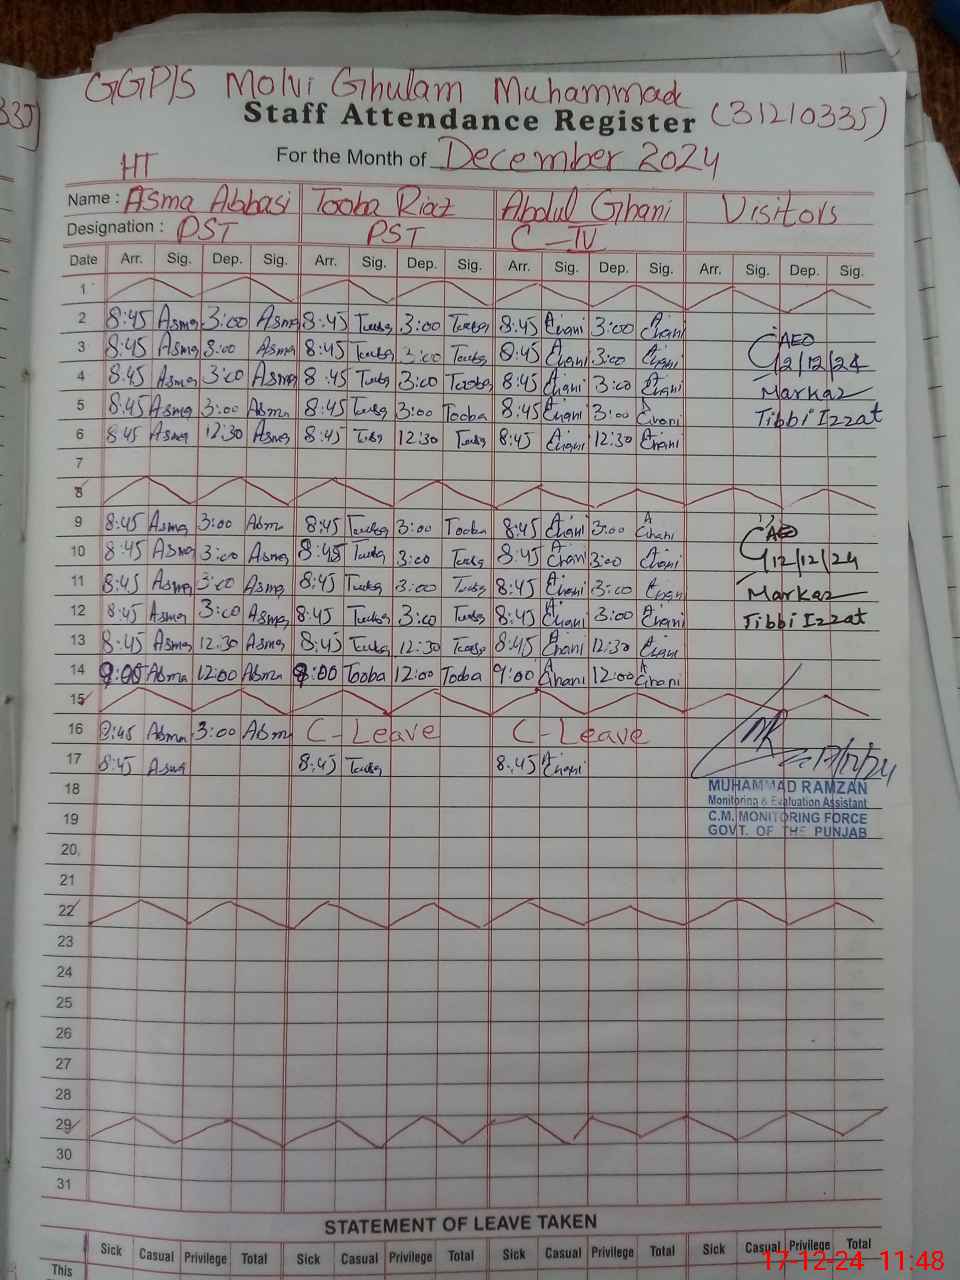 335)
GGP/S Molvi Ghulam Muhammad
Staff Attendance Register (31210335)
For the Month of December 2024
HT
Name : Asma Abbasi Tooba Riaz Abdul Ghani Visitors
Designation : PST PST C-IV
Date Arr. Sig. Dep. Sig. Arr. Sig. Dep. Sig. Arr. Sig. Dep. Sig. Arr. Sig. Dep. Sig.
1
2 8:45 Asma 3:00 Asma 8:45 Tooba 3:00 Tooba 8:45 Ghani 3:00 Ghani
3 8:45 Asma 3:00 Asma 8:45 Tooba 3:00 Tooba 8:45 Ghani 3:00 Ghani AEO
4 8:45 Asma 3:00 Asma 8:45 Tooba 3:00 Tooba 8:45 Ghani 3:00 Ghani 2/12/24
Markaz
5 8:45 Asma 3:00 Asma 8:45 Tooba 3:00 Tooba 8:45 Ghani 3:00 Ghani Tibbi Izzat
6 8:45 Asma 12:30 Asma 8:45 Tooba 12:30 Tooba 8:45 Ghani 12:30 Ghani
7
8
9 8:45 Asma 3:00 Asma 8:45 Tooba 3:00 Tooba 8:45 Ghani 3:00 A Ghani AEO
10 8:45 Asma 3:00 Asma 8:45 Tooba 3:00 Tooba 8:45 Ghani 3:00 Ghani 12/12/24
11 8:45 Asma 3:00 Asma 8:45 Tooba 3:00 Tooba 8:45 Ghani 3:00 Ghani Markaz
12 8:45 Asma 3:00 Asma 8:45 Tooba 3:00 Tooba 8:45 Ghani 3:00 Ghani Tibbi Izzat
13 8:45 Asma 12:30 Asma 8:45 Tooba 12:30 Tooba 8:45 Ghani 12:30 Ghani
14 9:00 Asma 12:00 Asma 9:00 Tooba 12:00 Tooba 9:00 A Ghani 12:00 A Ghani
15
16 8:45 Asma 3:00 Asma C-Leave C-Leave
17 8:45 Asma 8:45 Tooba 8:45 Ghani 17/12/24
18 MUHAMMAD RAMZAN
Monitoring & Evaluation Assistant
19 C.M. MONITORING FORCE
GOVT. OF THE PUNJAB
20
21
22
23
24
25
26
27
28
29
30
31
STATEMENT OF LEAVE TAKEN
Sick Casual Privilege Total Sick Casual Privilege Total Sick Casual Privilege Total Sick Casual Privilege Total
This
17-12-24 11:48